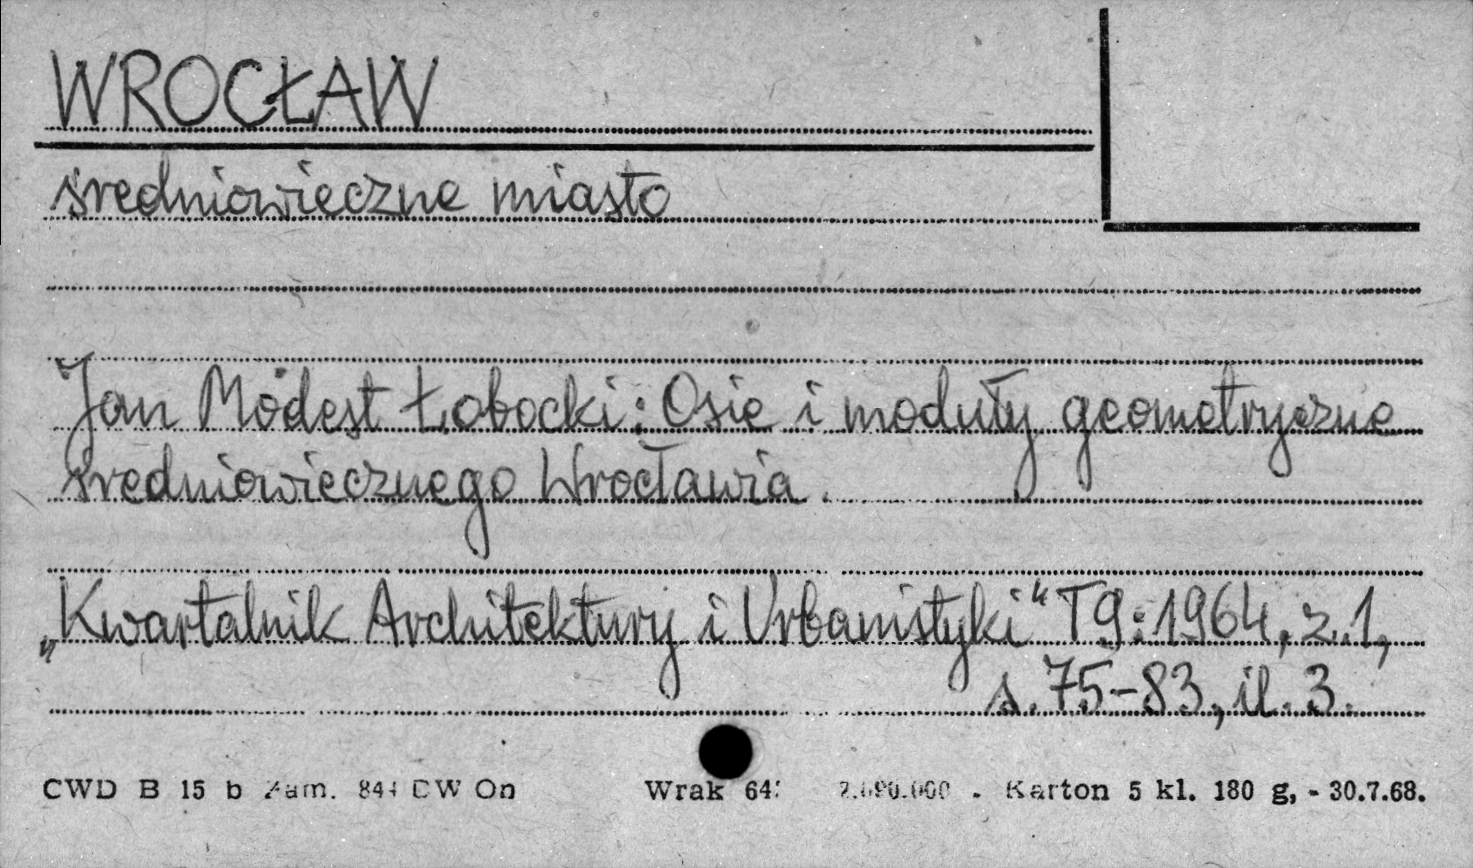 WROCŁAW
średniowieczne miasto
Jan Modest Łobocki: Osie i moduły geometryczne
średniowiecznego Wrocławia.
„Kwartalnik Architektury i Urbanistyki" T9:1964, z.1,
s. 75-83, il. 3.
CWD B 15 b Zam. DW On Wrak Karton 5 kl. 180 g, - 30.7.68.